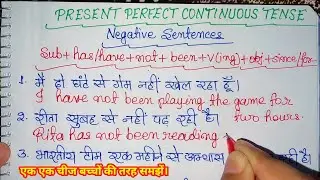 PRESENT PERFECT CONTINUOUS TENSE
Negative Sentences
Sub+has/have+not+been+V(ing)+obj+since/for
1. मैं दो घंटे से गेम नहीं खेल रहा हूँ।
I have not been playing the game for
two hours.
2. रीता सुबह से नहीं पढ़ रही है।
Rita has not been reading
3. भारतीय टीम एक महीने से अभ्यास नहीं
एक एक चीज बच्चों की तरह समझें।